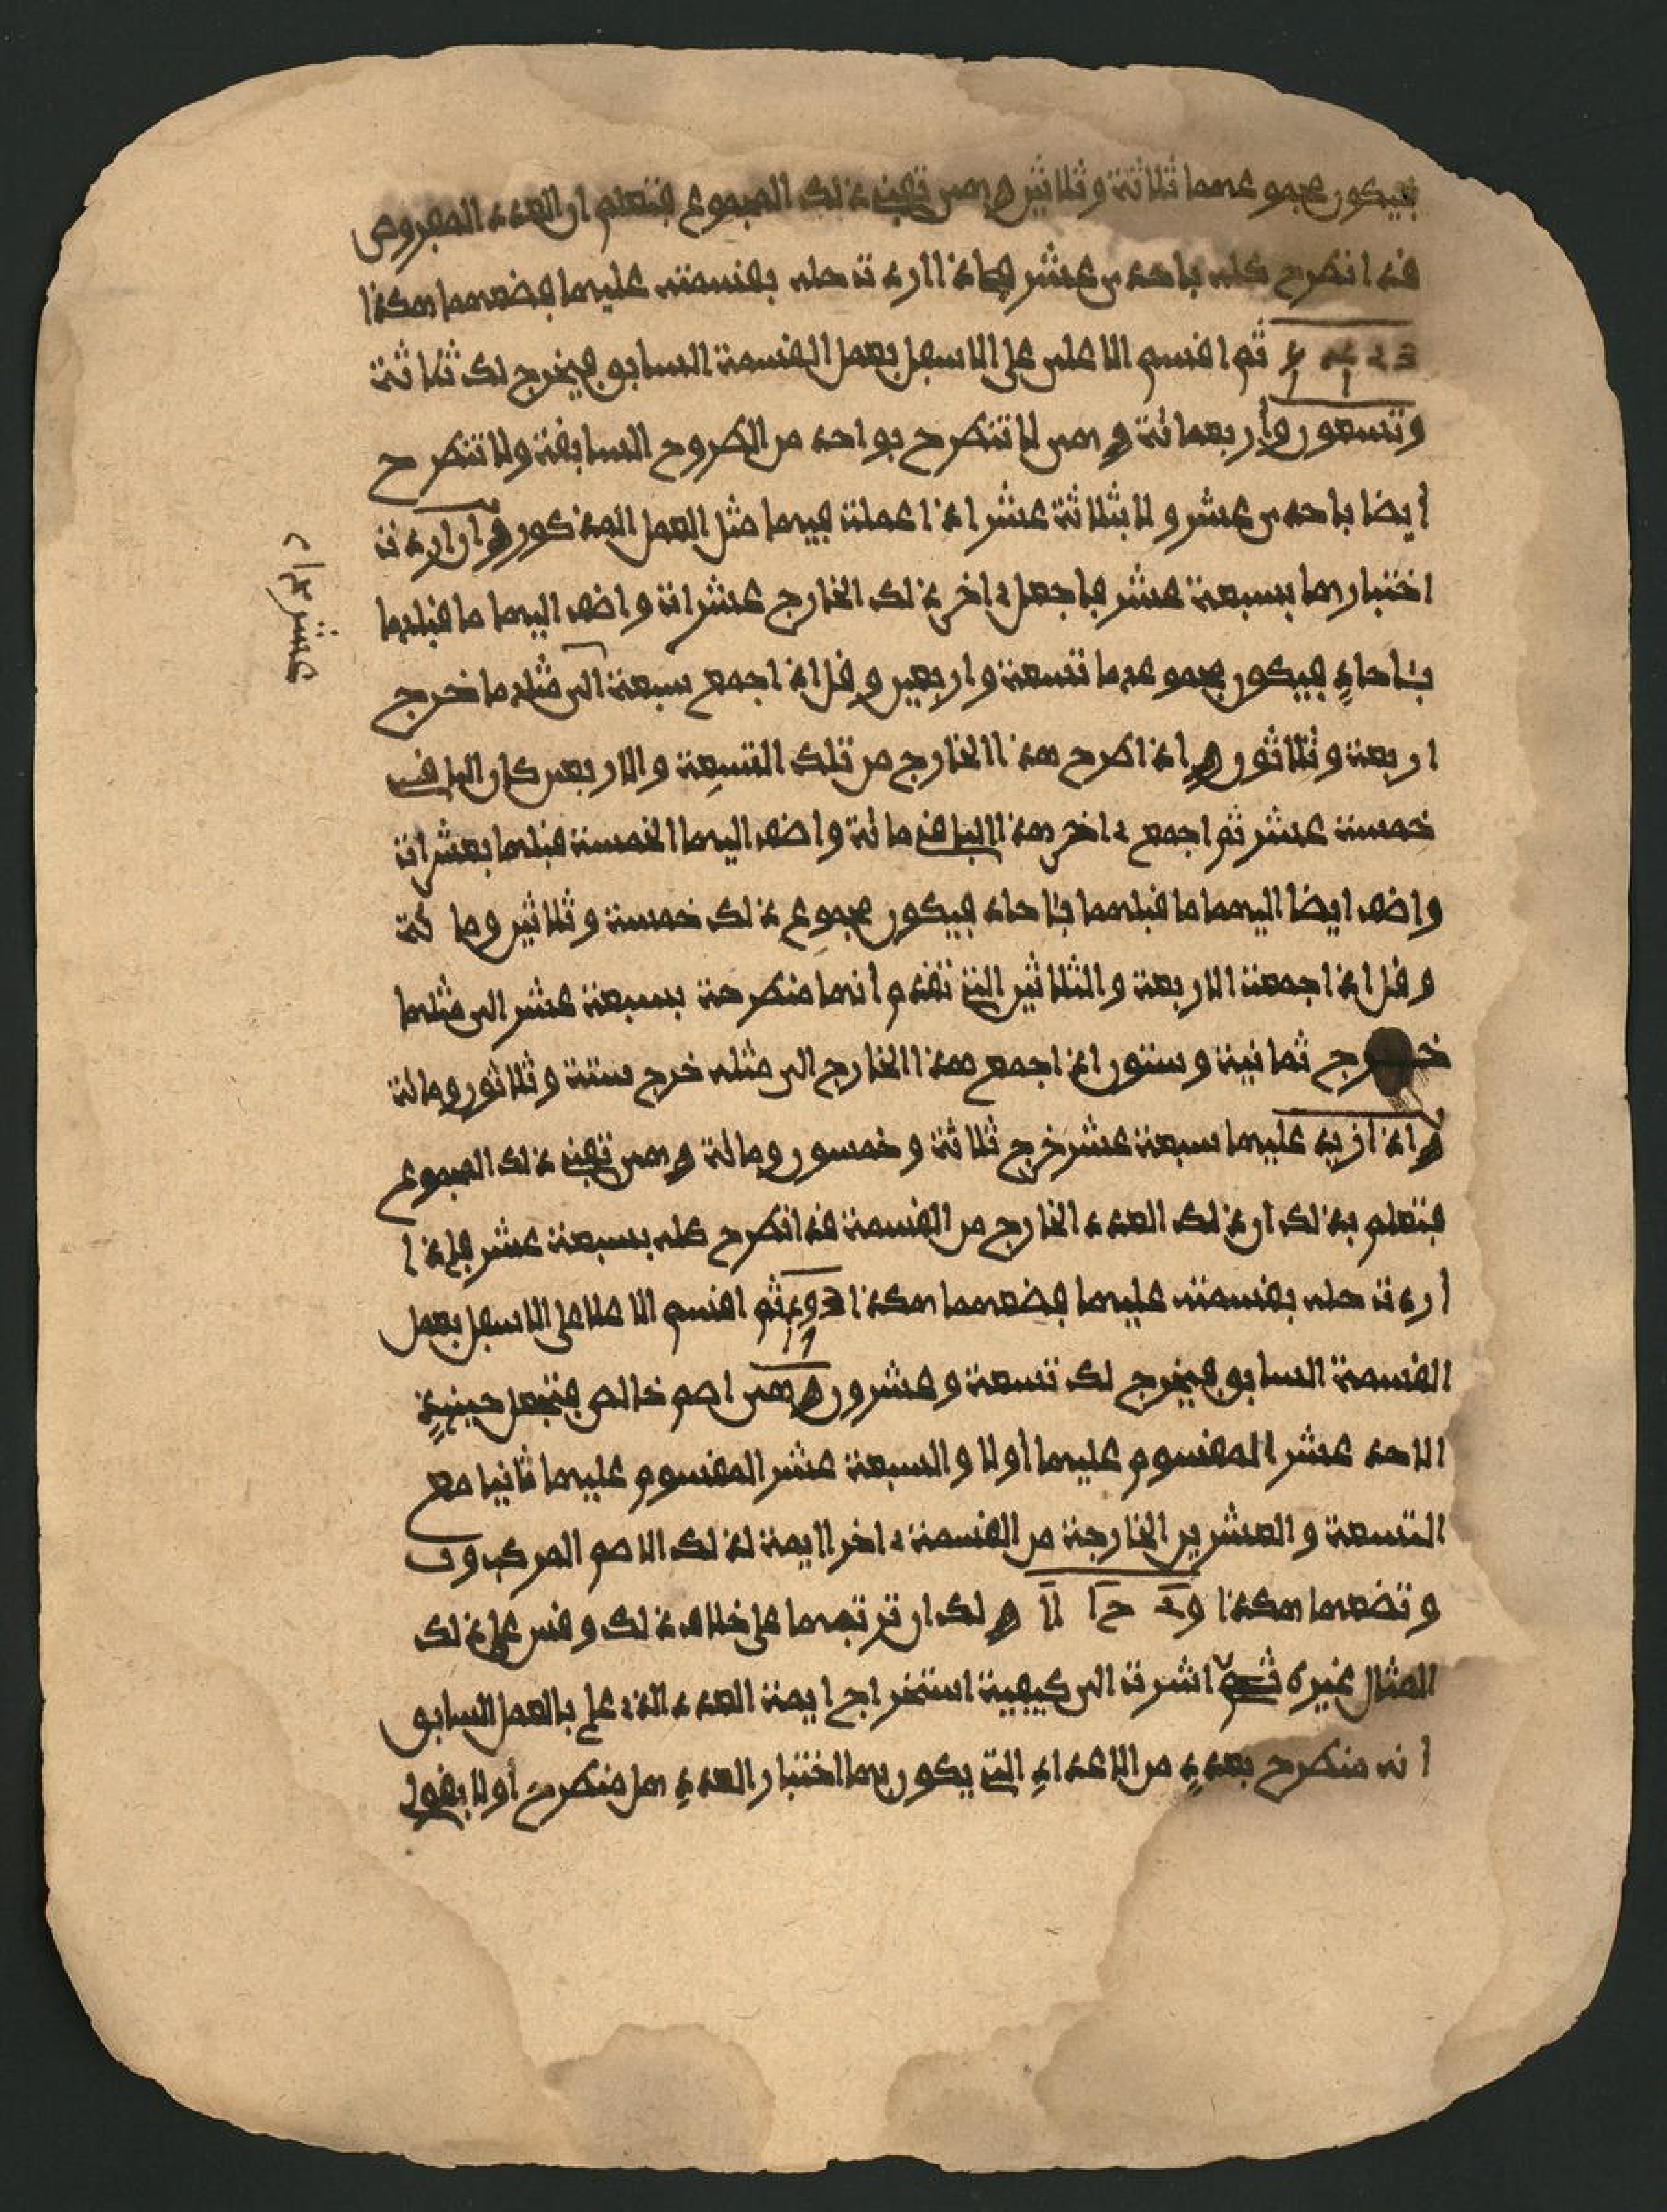 فيكون مجموعهما ثلاثة وثلاثين وهى تفنى ذلك المجموع فتعلم ان العدد المفروض
قد انطرح كله باحدى عشر فإذا اردت حله بقسمته عليها فضعهما هكذا
ثم اقسم الاعلى على الاسفل بعمل القسمة السابق فيخرج لك ثلاثة
وتسعون وأربعمائة وهى لا تنطرح بواحد من الطروح السابقة ولا تنطرح
أيضا باحدى عشر ولا بثلاثة عشر اذا عملت فيها مثل العمل المذكور وان اردت
اختبارها بسبعة عشر فاجعل ءاخر ذلك الخارج عشرات واضف اليها ما قبلها
بئاحادٍ فيكون مجموعهما تسعة واربعين وقل اذا جمع سبعة الى مثلها خرج
اربعة وثلاثون وإذا طرح هذا الخارج من تلك التسعة والاربعين كان الباقى
خمسة عشر ثم اجمع ءاخر هذا الباقى مائة واضف اليها الخمسة قبلها بعشرات
واضف ايضا اليهما ما قبلهما بئاحاد فيكون مجموع ذلك خمسة وثلاثين ومائة
وقل اذا جمعت الاربعة والثلاثين التى تقدم انها منطرحة بسبعة عشر الى مثلها
خرج ثمانية وستون اذا جمع هذا الخارج الى مثله خرج ستة وثلاثون ومائة
وإذا زيد عليها سبعة عشر خرج ثلاثة وخمسون ومائة وهى تفنى ذلك المجموع
فتعلم بذلك ان ذلك العدد الخارج من القسمة قد انطرح كله بسبعة عشر فإذا
أردت حله بقسمته عليها فضعهما هكذا ثم اقسم الاعلا على الاسفل بعمل
القسمة السابق فيخرج لك تسعة وعشرون وهى اصم خالص فتجعل حينئذٍ
الاحد عشر المقسوم عليها أولا والسبعة عشر المقسوم عليها ثانيا مع
التسعة والعشرين الخارجة من القسمة ءاخرا ايمة لذلك الاصم المركب
وتضعها هكذا ولك ان ترتبها على خلاف ذلك وقس على ذلك
المثال غيره ثم اشرت الى كيفية استخراج ايمة العدد الذى علم بالعمل السابق
انه منطرح بعددٍ من الاعدادِ التى يكون بها اختبار العددِ هل منطرح أو لا بقولى